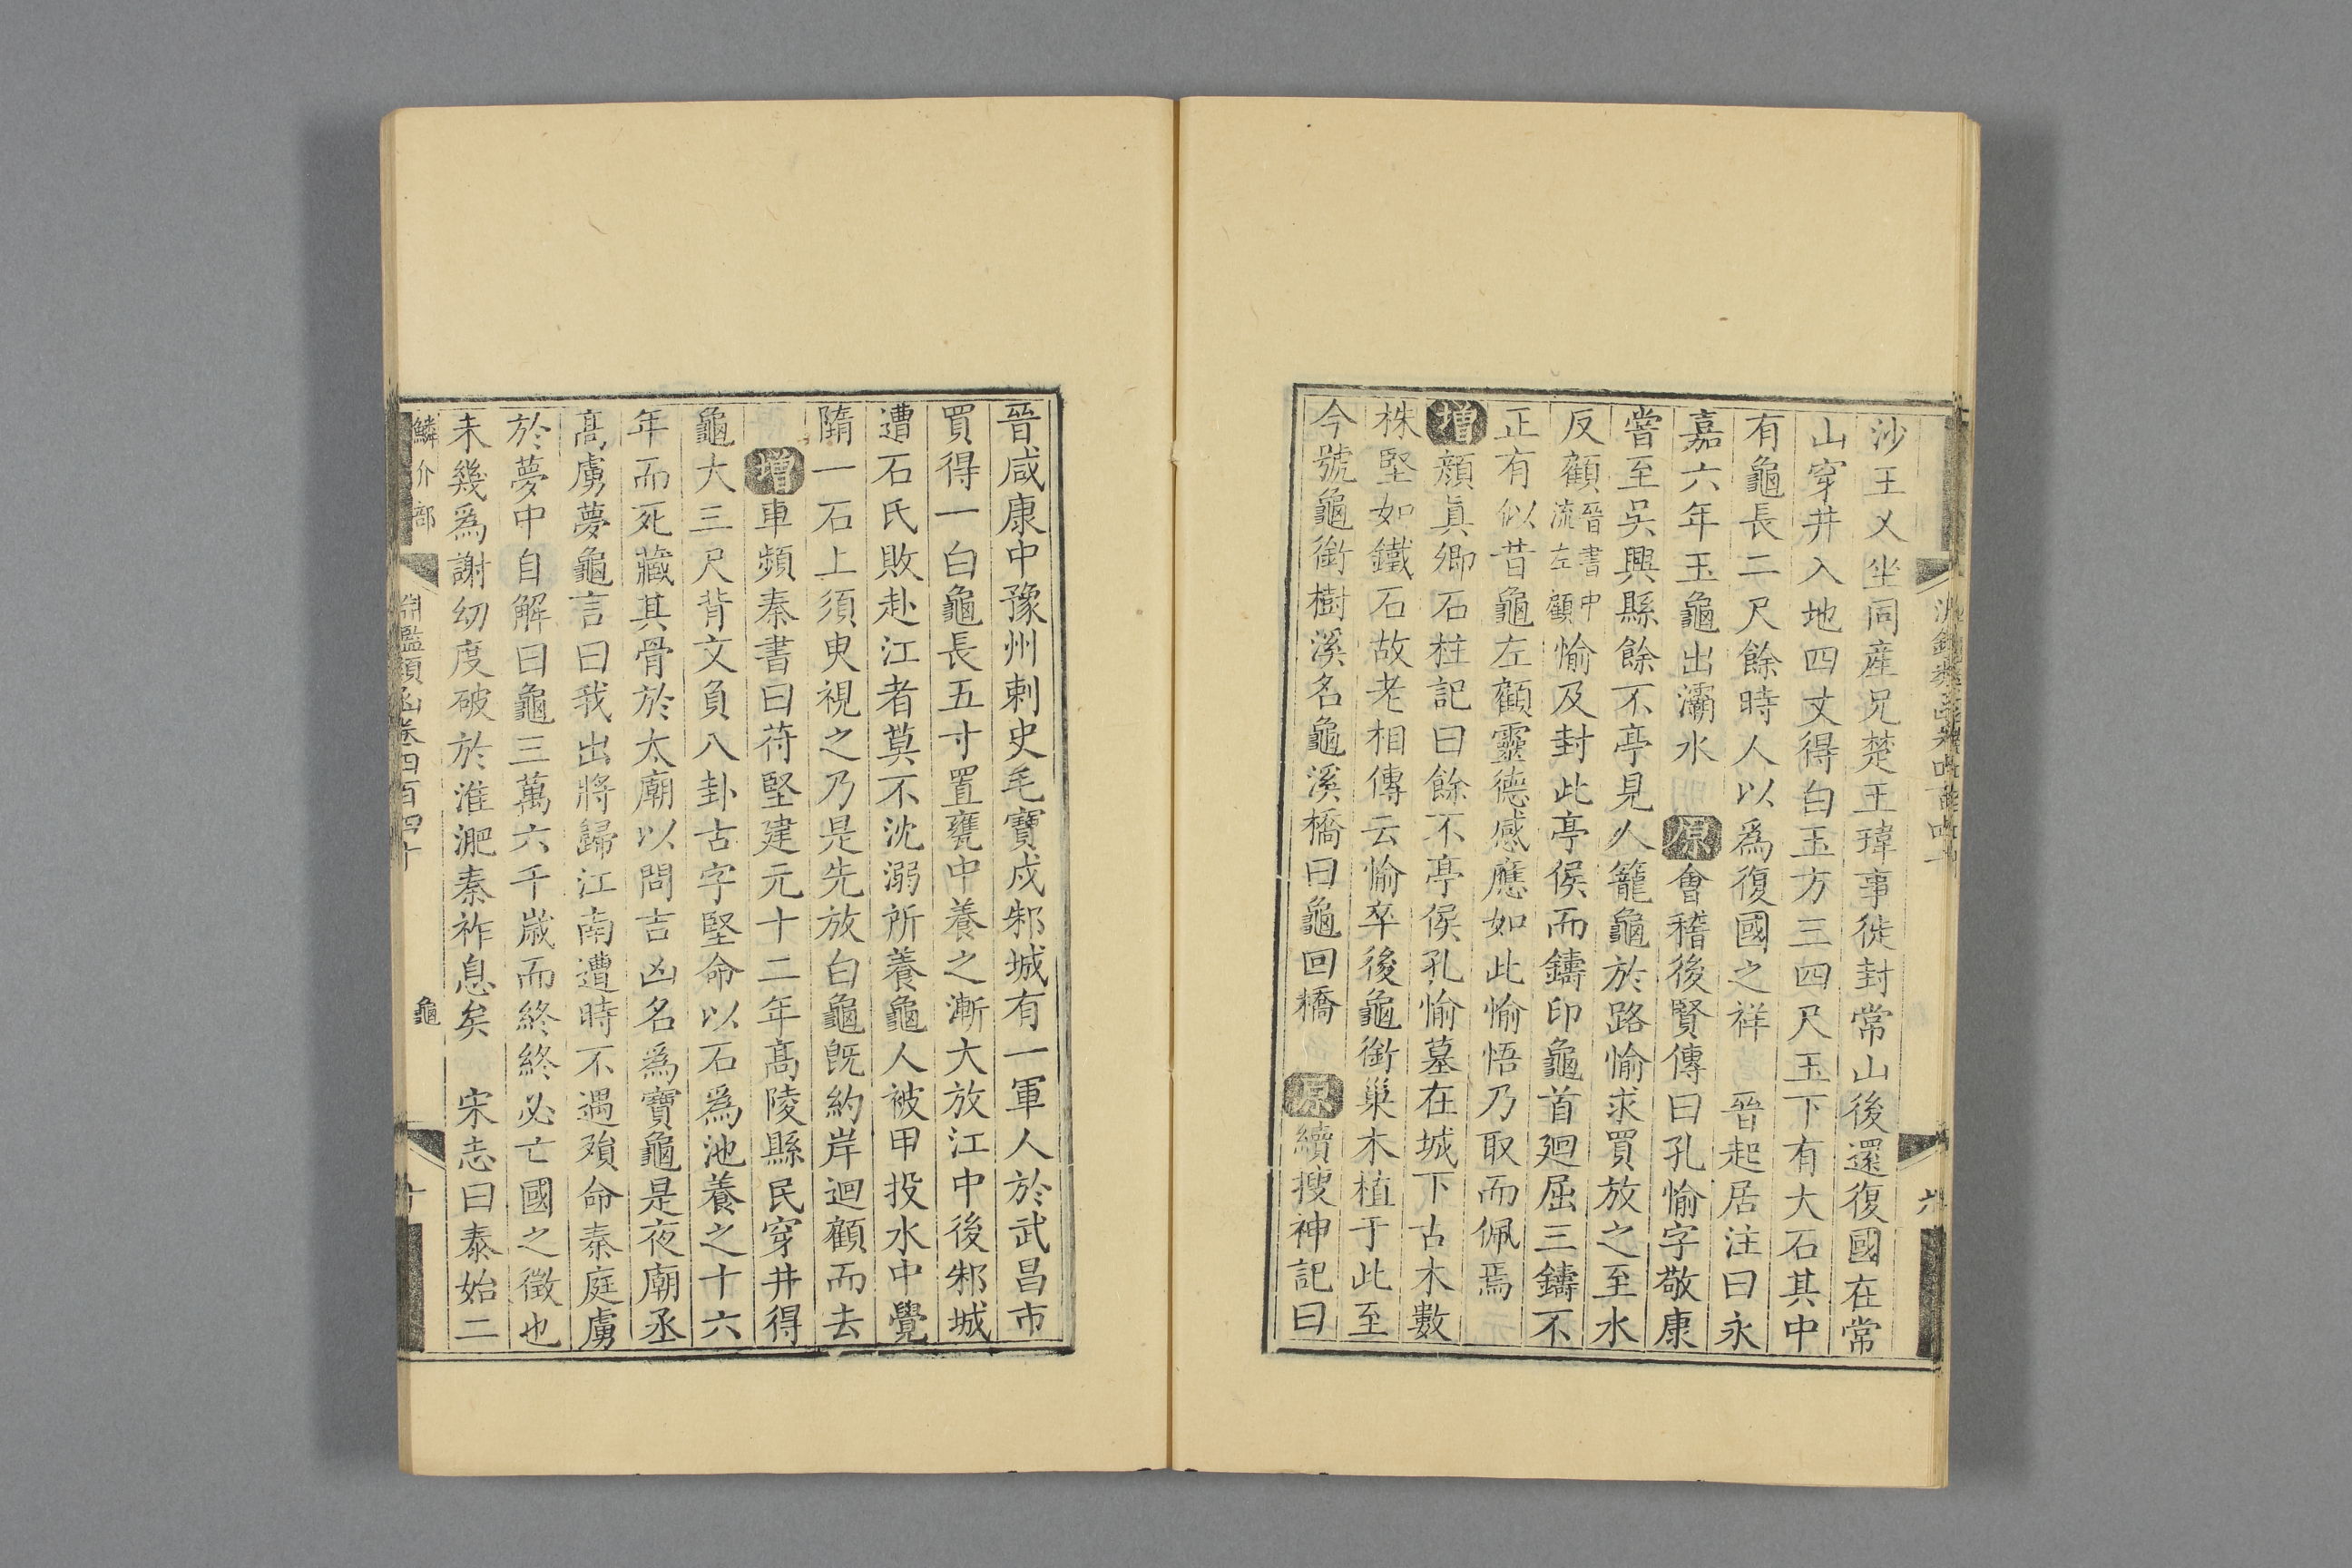 沙王乂坐同産兄楚王瑋事徙封常山後還復國在常
山穿井入地四丈得白玉方三四尺玉下有大石其中
有龜長二尺餘時人以爲復國之祥　晉起居注曰永
嘉六年玉龜出灞水　原會稽後賢傳曰孔愉字敬康
嘗至吳興縣餘不亭見人籠龜於路愉求買放之至水
反顧晉書中流左顧愉及封此亭侯而鑄印龜首廻屈三鑄不
正有似昔龜左顧靈德感應如此愉悟乃取而佩焉
增顏眞卿石柱記曰餘不亭侯孔愉墓在城下古木數
株堅如鐵石故老相傳云愉卒後龜銜巢木植于此至
今號龜銜樹溪名龜溪橋曰龜回橋　原續搜神記曰
晉咸康中豫州刺史毛寶戍邾城有一軍人於武昌市
買得一白龜長五寸置甕中養之漸大放江中後邾城
遭石氏敗赴江者莫不沈溺所養龜人被甲投水中覺
隋一石上須臾視之乃是先放白龜旣約岸迴顧而去
增車頻秦書曰苻堅建元十二年高陵縣民穿井得
龜大三尺背文負八卦古字堅命以石爲池養之十六
年而死藏其骨於太廟以問吉凶名爲寶龜是夜廟丞
高虜夢龜言曰我出將歸江南遭時不遇殞命秦庭虜
於夢中自解曰龜三萬六千歲而終終必亡國之徵也
未幾爲謝幼度破於淮淝秦祚息矣　宋志曰泰始二
鱗介部　淵鑑類函卷四百四十　龜　十